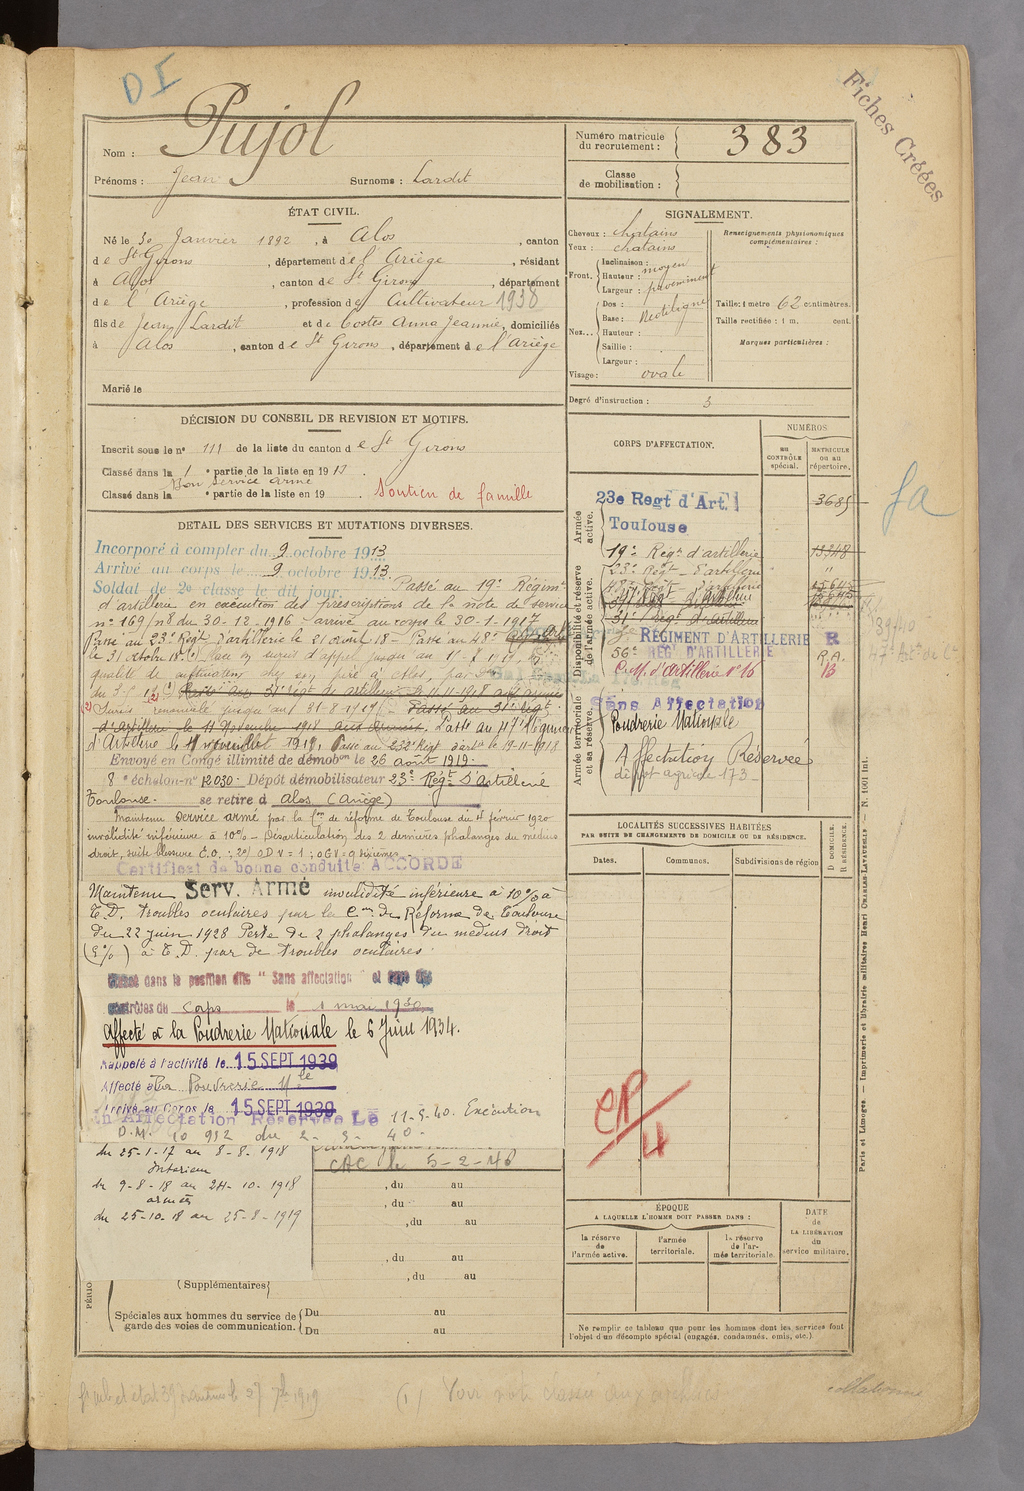 D I
Fiches Créées
Nom : Pujol
Prénoms : Jean Surnoms : Lardit
Numéro matricule du recrutement : 383
Classe de mobilisation :
ÉTAT CIVIL.
Né le 30 Janvier 1892, à Alos, canton
de St Girons, département de l'Ariège, résidant
à Alos, canton de St Girons, département
de l'Ariège, profession de Cultivateur 1938
fils de Jean Lardit et de Costes Anne Jeannie, domiciliés
à Alos, canton de St Girons, département de l'Ariège
Marié le
SIGNALEMENT.
Cheveux : chatains
Yeux : chatains
Front. Inclinaison :
Hauteur : moyen
Largeur : proéminent
Nez... Dos :
Base : Rectiligne
Hauteur :
Saillie :
Largeur :
Visage : ovale
Renseignements physionomiques complémentaires :
Taille : 1 mètre 62 centimètres.
Taille rectifiée : 1 m. cent.
Marques particulières :
Degré d'instruction : 3
DÉCISION DU CONSEIL DE REVISION ET MOTIFS.
Inscrit sous le no 111 de la liste du canton de St Girons
Classé dans la 1e partie de la liste en 1913.
Bon service armé
Classé dans la e partie de la liste en 19 Soutien de famille
DETAIL DES SERVICES ET MUTATIONS DIVERSES.
Incorporé à compter du 9 octobre 1913
Arrivé au corps le 9 octobre 1913.
Soldat de 2e classe le dit jour. Passé au 19e Régimt
d'artillerie en exécution des prescriptions de la note de service
no 169/n8 du 30-12-1916 arrivé au corps le 30-1-1917
Passé au 23e Régt d'artillerie le 21 août 18 - Passé au 48e
le 31 octobre 18.
qualité de cultivateur chez son père à Alos,
Passé au 31e régt de artillerie le 11-11-1918
Sursis renouvelé jusqu'au 31-8-1919 - Passé au 31e régt
d'artillerie le 11 Novembre 1918 aux armées. Passé au 117e Régiment
d'Artillerie le 11 1919. Passé au 232e Régt d'art le 19-11-1918
Envoyé en Congé illimité de démobon le 26 août 1919.
8e échelon - no 12030 - Dépôt démobilisateur 23e Régt d'Artillerie
Toulouse. se retire à Alos (Ariège)
Maintenu service armé par la Con de réforme de Toulouse du 4 février 1920
invalidité inférieure à 10% - Désarticulation des 2 dernières phalanges du médius
droit, suite blessure E.O. ; 2o/ OD V = 1 ; OG V = 9 dixièmes
Certificat de bonne conduite ACCORDÉ
Maintenu Serv. Armé invalidité inférieure à 10% à
T.D. troubles oculaires par la Con de Réforme de Toulouse
du 22 juin 1928 Perte de 2 phalanges du médius droit
(5%) à T.D. par de troubles oculaires.
Classé dans la position dite "Sans affectation" et
contrôles du Corps le 1 mai 1930
Affecté à la Poudrerie Nationale le 5 Juin 1934.
Rappelé à l'activité le 15 SEPT 1939
Affecté à la Poudrerie Nle
Arrivé au Corps le 15 SEPT 1939
en Affectation Réservée Le 11-5-40. Exécution
D.M. 10 912 du 2-3-40-
du 25-1-17 au 8-8-1918
intérieur
du 9-8-18 au 24-10-1918
armées
du 25-10-18 au 25-8-1919
CAC le 5-2-46
, du au
, du au
, du au
, du au
, du au
(Supplémentaires)
Spéciales aux hommes du service de garde des voies de communication.
Du au
Du au
CORPS D'AFFECTATION.
NUMÉROS
au CONTRÔLE spécial.
MATRICULE ou au répertoire.
Armée active.
23e Regt d'Art. Toulouse 3685
fa
Disponibilité et réserve de l'armée active.
19e Régt d'artillerie 13348
23e Régt d'artillerie "
48e Régt d'artillerie 15645
31e Régt d'artillerie
RÉGIMENT D'ARTILLERIE R
56e REGt D'ARTILLERIE R.A.
C.M. d'Artillerie no 16 B
Armée territoriale et sa réserve.
Sans Affectation
Poudrerie Nationale
Affectation Réservée
dépôt agricole 173-
LOCALITÉS SUCCESSIVES HABITÉES
PAR SUITE DE CHANGEMENTS DE DOMICILE OU DE RÉSIDENCE.
Dates. Communes. Subdivisions de région
D. DOMICILE. R. RÉSIDENCE.
CP/4
ÉPOQUE
A LAQUELLE L'HOMME DOIT PASSER DANS :
la réserve de l'armée active. l'armée territoriale. la réserve de l'armée territoriale.
DATE de LA LIBÉRATION du service militaire.
Ne remplir ce tableau que pour les hommes dont les services font l'objet d'un décompte spécial (engagés, condamnés, omis, etc.)
Paris et Limoges. — Imprimerie et librairie militaires Henri CHARLES-LAVAUZELLE — N. 1001 int.
(1) Voir note classée aux